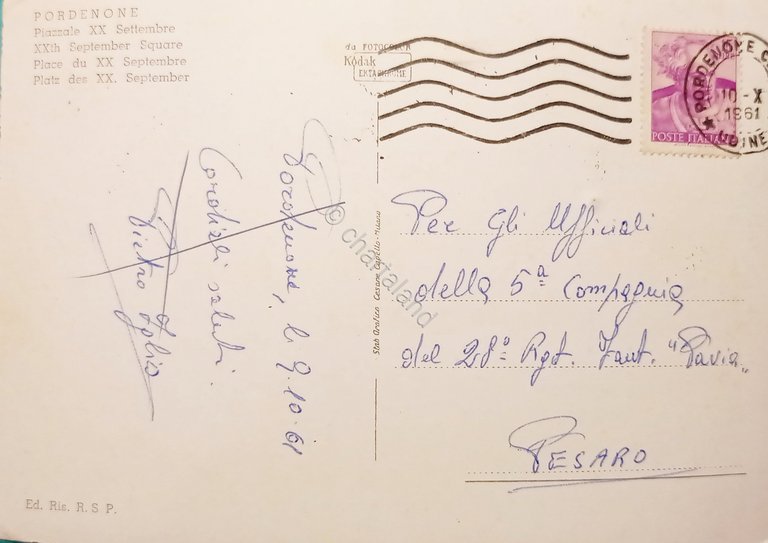 PORDENONE
Piazzale XX Settembre
XXth September Square
Place du XX Septembre
Platz des XX. September
da FOTOCOLOR
Kodak
EKTACHROME
PORDENONE
10-X
1961
UDINE
POSTE ITALIANE
Pordenone, li 9.10.61
Cordiali saluti.
Pietro
© chataland
Stab Grafico Cesare Capello-Milano
Per gli Ufficiali
della 5ª Compagnia
del 28º Rgt. Fant. "Pavia"
PESARO
Ed. Ris. R. S P.